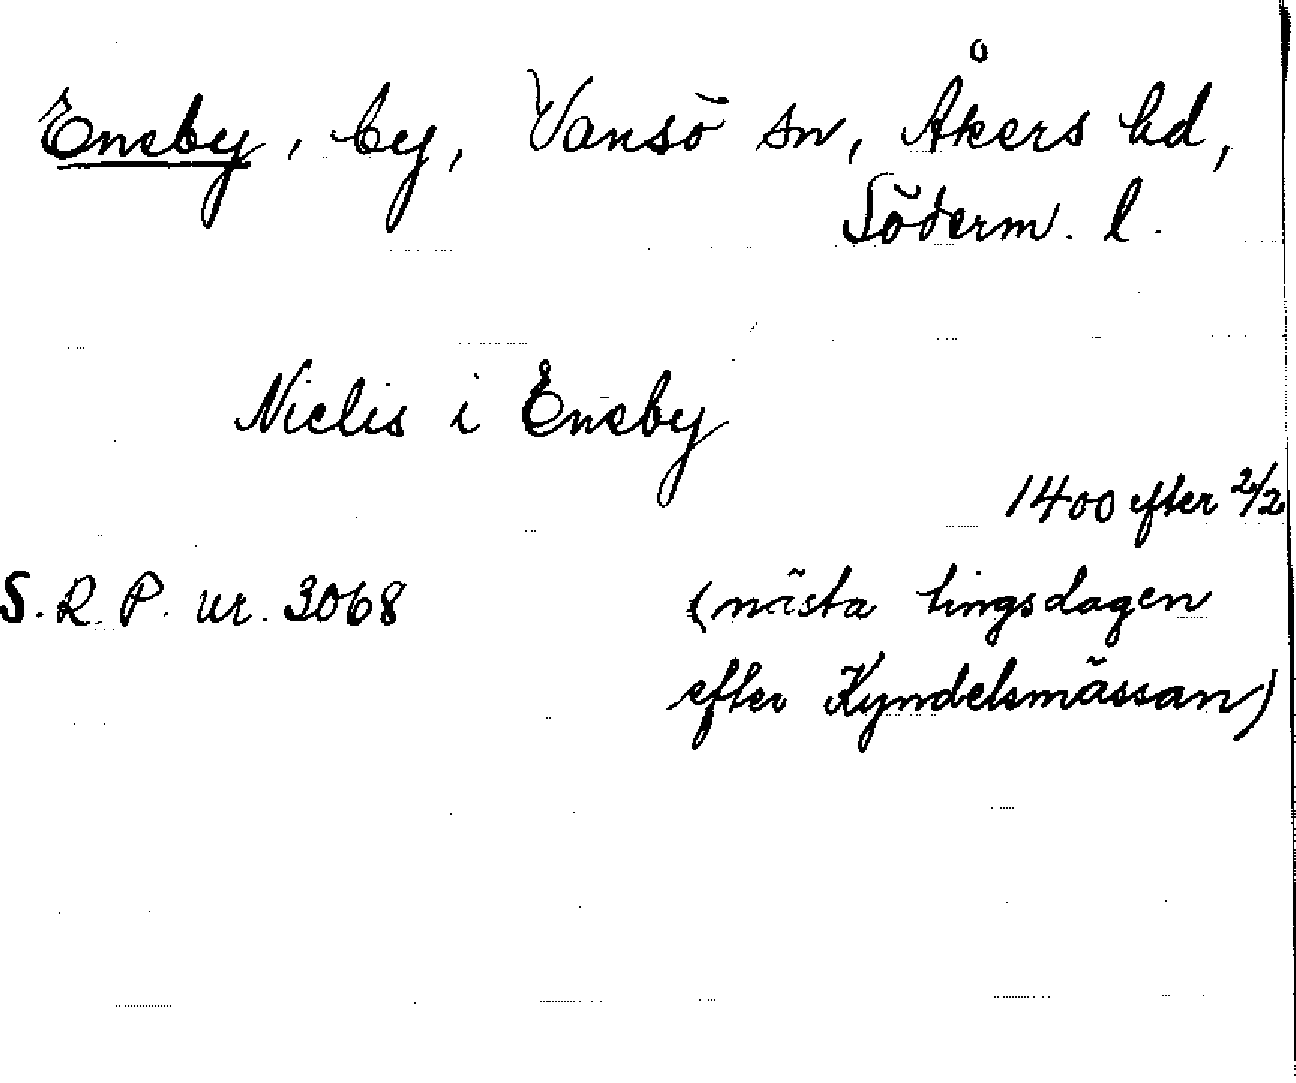 Eneby, by, Vansö sn, Åkers hd,
Söderm. l.
Niclis i Eneby
1400 efter 2/2
S.R.P. nr. 3068 (nästa tingsdagen
efter Kyndelsmässan)